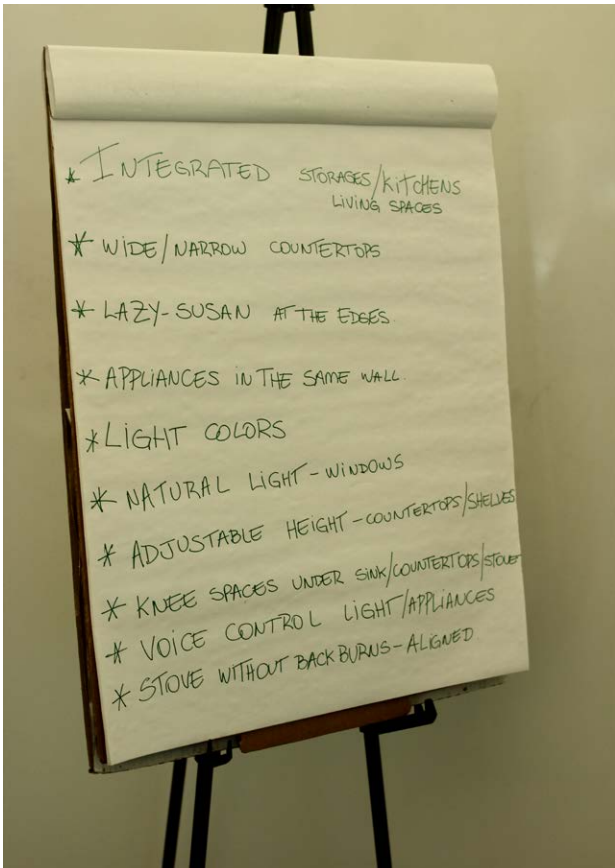 * INTEGRATED STORAGES/KITCHENS
LIVING SPACES
* WIDE/NARROW COUNTERTOPS
* LAZY-SUSAN AT THE EDGES.
* APPLIANCES IN THE SAME WALL.
* LIGHT COLORS
* NATURAL LIGHT-WINDOWS
* ADJUSTABLE HEIGHT-COUNTERTOPS/SHELVES
* KNEE SPACES UNDER SINK/COUNTERTOPS/STOVE
* VOICE CONTROL LIGHT/APPLIANCES
* STOVE WITHOUT BACK BURNS-ALIGNED.